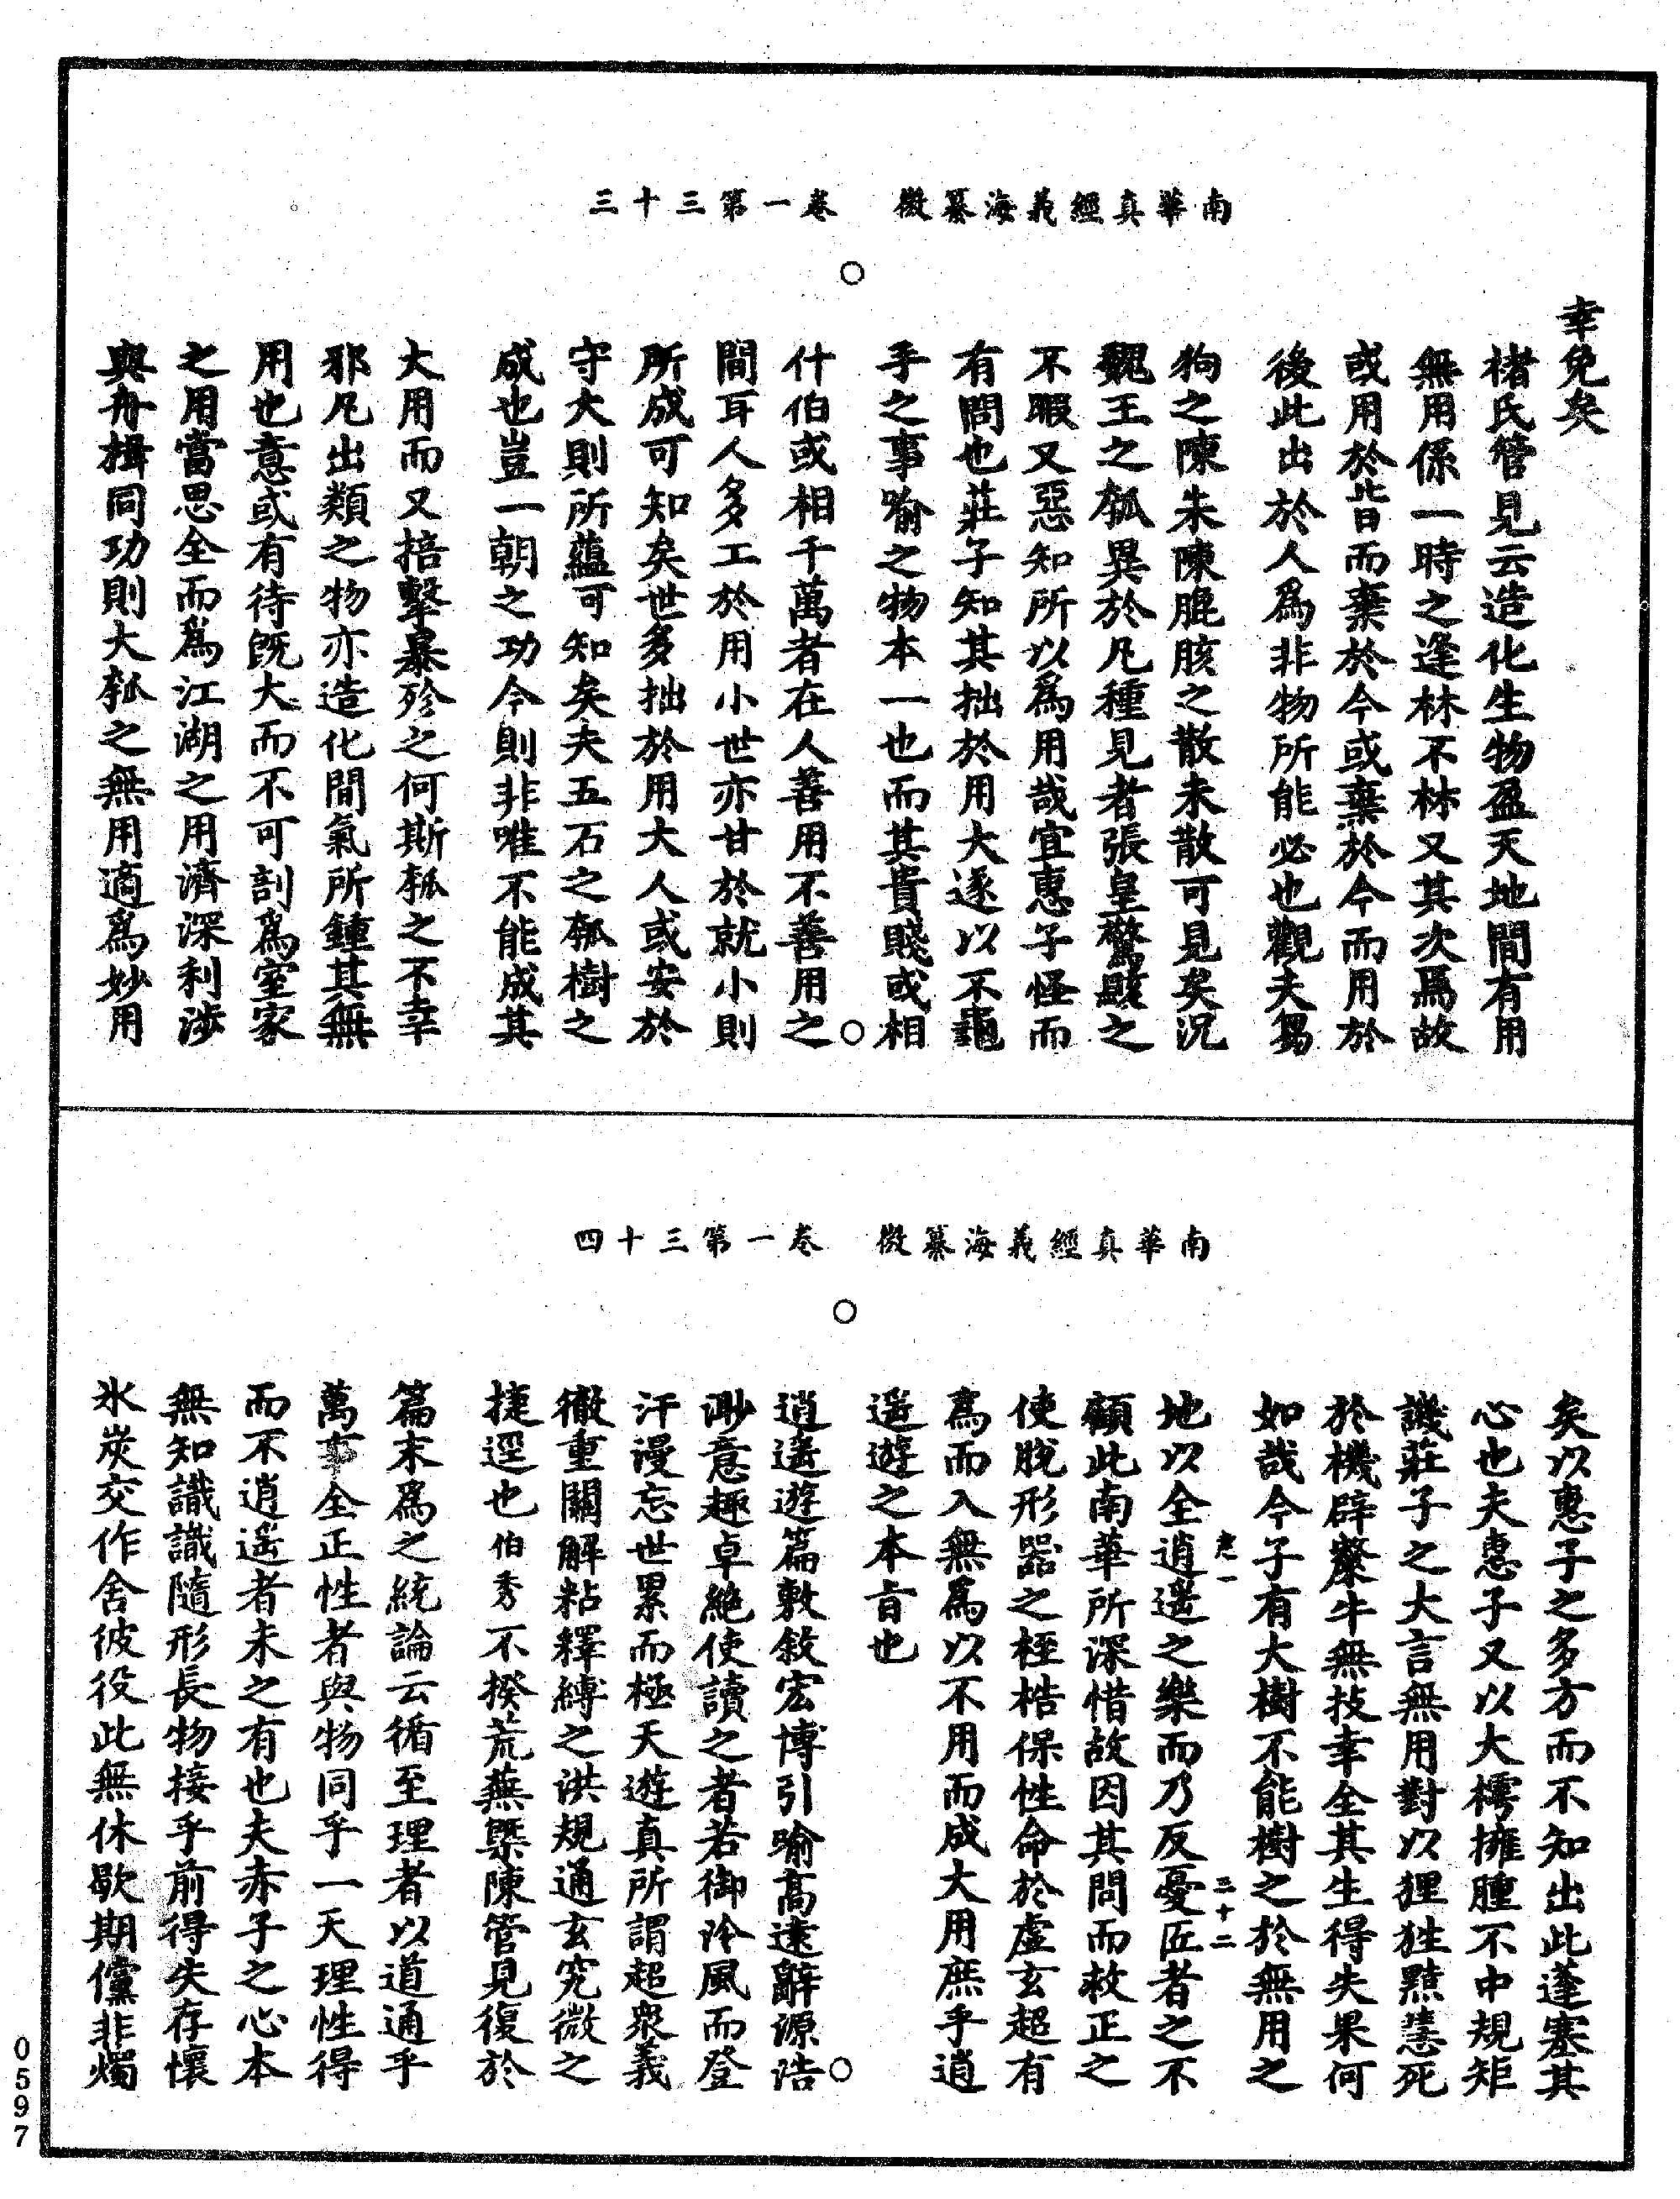 南華真經義海纂微　卷一第三十三
幸免矣
楮氏管見云造化生物盈天地間有用
無用係一時之逢林不林又其次焉故
或用於昔而棄於今或棄於今而用於
後此出於人為非物所能必也觀夫芻
狗之陳未陳膍胲之散未散可見矣況
魏王之瓠異於凡種見者張皇驚駭之
不暇又惡知所以為用哉宜惠子怪而
有問也莊子知其拙於用大遂以不龜
手之事喻之物本一也而其貴賤或相
什伯或相千萬者在人善用不善用之
間耳人多工於用小世亦甘於就小則
所成可知矣世多拙於用大人或安於
守大則所蘊可知矣夫五石之瓠樹之
成也豈一朝之功今則非唯不能成其
大用而又掊擊暴殄之何斯瓠之不幸
邪凡出類之物亦造化間氣所鍾其無
用也意或有待既大而不可剖為室家
之用當思全而為江湖之用濟深利涉
與舟楫同功則大瓠之無用適為妙用
南華真經義海纂微　卷一第三十四
矣以惠子之多方而不知出此蓬塞其
心也夫惠子又以大樗擁腫不中規矩
譏莊子之大言無用對以狸狌黠慧死
於機辟斄牛無技幸全其生得失果何
如哉今子有大樹不能樹之於無用之
地以全逍遙之樂而乃反憂匠者之不
虎一　三十二
顧此南華所深惜故因其問而救正之
使脫形器之桎梏保性命於虛玄超有
為而入無為以不用而成大用庶乎逍
遙遊之本旨也
逍遙遊篇敷敘宏博引喻高遠辭源浩
渺意趣卓絕使讀之者若御泠風而登
汗漫忘世累而極天遊真所謂超衆義
徹重關解粘釋縛之洪規通玄究微之
捷逕也伯秀不揆荒蕪槩陳管見復於
篇末為之統論云循至理者以道通乎
萬事全正性者與物同乎一天理性得
而不逍遙者未之有也夫赤子之心本
無知識識隨形長物接乎前得失存懷
氷炭交作舍彼役此無休歇期儻非燭
0597